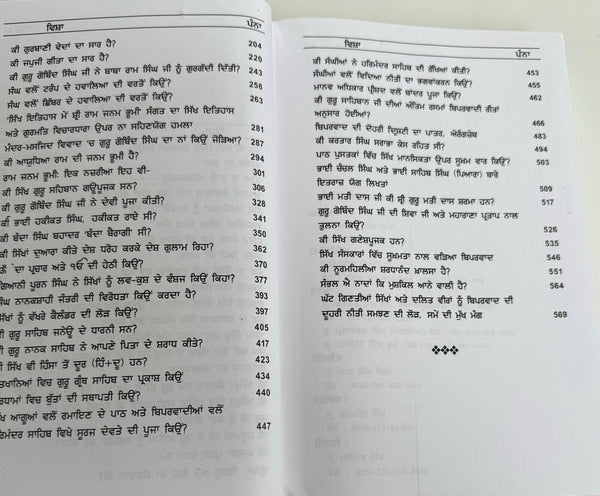 ਵਿਸ਼ਾ ਪੰਨਾ
ਕੀ ਗੁਰਬਾਣੀ ਵੇਦਾਂ ਦਾ ਸਾਰ ਹੈ? 204
ਕੀ ਜਪੁਜੀ ਗੀਤਾ ਦਾ ਸਾਰ ਹੈ? 220
ਕੀ ਗੁਰੂ ਗੋਬਿੰਦ ਸਿੰਘ ਜੀ ਨੇ ਬਾਬਾ ਰਾਮ ਸਿੰਘ ਜੀ ਨੂੰ ਗੁਰਗੱਦੀ ਦਿੱਤੀ? 243
ਸੰਘ ਵਲੋਂ ਟਰੰਪ ਦੇ ਹਵਾਲਿਆਂ ਦੀ ਵਰਤੋਂ ਕਿਉਂ? 256
ਸੰਘ ਵਲੋਂ ਛਿੱਬਰ ਦੇ ਹਵਾਲਿਆਂ ਦੀ ਵਰਤੋਂ ਕਿਉਂ? 263
'ਸਿੱਖ ਇਤਿਹਾਸ ਮੇਂ ਸ੍ਰੀ ਰਾਮ ਜਨਮ ਭੂਮੀ' ਸੰਗਤ ਦਾ ਸਿੱਖ ਇਤਿਹਾਸ
ਅਤੇ ਗੁਰਮਤਿ ਵਿਚਾਰਧਾਰਾ ਉਪਰ ਨਾ ਸਹਿਣਯੋਗ ਹਮਲਾ 281
ਮੰਦਰ-ਮਸਜਿਦ ਵਿਵਾਦ 'ਚ ਗੁਰੂ ਗੋਬਿੰਦ ਸਿੰਘ ਦਾ ਨਾਂ ਕਿਉਂ ਜੋੜਿਆ? 287
ਕੀ ਅਯੁਧਿਆ ਰਾਮ ਦੀ ਜਨਮ ਭੂਮੀ ਹੈ? 294
ਰਾਮ ਜਨਮ ਭੂਮੀ: ਇਕ ਨਜ਼ਰੀਆ ਇਹ ਵੀ- 301
ਕੀ ਸਿੱਖ ਗੁਰੂ ਸਹਿਬਾਨ ਗਊਪੂਜਕ ਸਨ? 306
ਕੀ ਗੁਰੂ ਗੋਬਿੰਦ ਸਿੰਘ ਜੀ ਨੇ ਦੇਵੀ ਪੂਜਾ ਕੀਤੀ? 328
ਕੀ ਭਾਈ ਹਕੀਕਤ ਸਿੰਘ, ਹਕੀਕਤ ਰਾਏ ਸੀ? 341
ਕੀ ਬੰਦਾ ਸਿੰਘ ਬਹਾਦਰ 'ਬੰਦਾ ਬੈਰਾਗੀ' ਸੀ? 350
ਕੀ ਸਿੱਖਾਂ ਦੁਆਰਾ ਕੀਤੇ ਦੇਸ਼ ਧਰੋਹ ਕਰਕੇ ਦੇਸ਼ ਗੁਲਾਮ ਰਿਹਾ? 362
ਦਾ ਪ੍ਰਚਾਰ ਅਤੇ ੴ ਦੀ ਹੇਠੀ ਕਿਉਂ? 370
ਗਿਆਨੀ ਪੂਰਨ ਸਿੰਘ ਨੇ ਸਿੱਖਾਂ ਨੂੰ ਲਵ-ਕੁਸ਼ ਦੇ ਵੰਸ਼ਜ ਕਿਉਂ ਕਿਹਾ? 377
ਸੰਘ ਨਾਨਕਸ਼ਾਹੀ ਜੰਤਰੀ ਦੀ ਵਿਰੋਧਤਾ ਕਿਉਂ ਕਰਦਾ ਹੈ? 393
ਸਿੱਖਾਂ ਨੂੰ ਵੱਖਰੇ ਕੈਲੰਡਰ ਦੀ ਲੋੜ ਕਿਉਂ? 397
ਗੁਰੂ ਸਾਹਿਬ ਜਨੇਊ ਦੇ ਧਾਰਨੀ ਸਨ? 405
ਗੁਰੂ ਨਾਨਕ ਸਾਹਿਬ ਨੇ ਆਪਣੇ ਪਿਤਾ ਦੇ ਸ਼ਰਾਧ ਕੀਤੇ? 417
ਸਿੱਖ ਵੀ ਹਿੰਸਾ ਤੋਂ ਦੂਰ (ਹਿੰ+ਦੂ) ਹਨ? 423
ਵਿਚ ਗੁਰੂ ਗ੍ਰੰਥ ਸਾਹਿਬ ਦਾ ਪ੍ਰਕਾਸ਼ ਕਿਉਂ 434
ਵਿਚ ਬੁੱਤਾਂ ਦੀ ਸਥਾਪਤੀ ਕਿਉਂ? 440
ਆਗੂਆਂ ਵਲੋਂ ਰਮਾਇਣ ਦੇ ਪਾਠ ਅਤੇ ਬਿਪਰਵਾਦੀਆਂ ਵਲੋਂ
ਸਾਹਿਬ ਵਿਖੇ ਸੂਰਜ ਦੇਵਤੇ ਦੀ ਪੂਜਾ ਕਿਉਂ? 447
ਵਿਸ਼ਾ ਪੰਨਾ
ਕੀ ਸੰਘੀਆਂ ਨੇ ਹਰਿਮੰਦਰ ਸਾਹਿਬ ਦੀ ਰੱਖਿਆ ਕੀਤੀ? 453
ਸੰਘੀਆਂ ਵਲੋਂ ਵਿਦਿਆ ਨੀਤੀ ਦਾ ਭਗਵਾਂਕਰਨ ਕਿਉਂ? 455
ਮਾਨਵ ਅਧਿਕਾਰ ਪ੍ਰੀਸ਼ਦ ਵਲੋਂ ਬਾਂਦਰ ਪੂਜਾ ਕਿਉਂ? 462
ਕੀ ਗੁਰੂ ਸਾਹਿਬਾਨ ਜੀ ਦੀਆਂ ਅੰਤਿਮ ਰਸਮਾਂ ਬਿਪਰਵਾਦੀ ਰੀਤਾਂ
ਅਨੁਸਾਰ ਹੋਈਆਂ? 466
ਬਿਪਰਵਾਦ ਦੀ ਦੋਹਰੀ ਦ੍ਰਿਸ਼ਟੀ ਦਾ ਪਾਤਰ, ਔਰੰਗਜ਼ੇਬ 483
ਕੀ ਕਰਤਾਰ ਸਿੰਘ ਸਰਾਭਾ ਕੇਸ ਰਹਿਤ ਸੀ? 494
ਪਾਠ ਪੁਸਤਕਾਂ ਵਿੱਚ ਸਿੱਖ ਮਾਨਸਿਕਤਾ ਉਪਰ ਸੂਖਮ ਵਾਰ ਕਿਉਂ? 503
ਭਾਈ ਚੰਚਲ ਸਿੰਘ ਅਤੇ ਭਾਈ ਸਾਹਿਬ ਸਿੰਘ (ਪਿਆਰਾ) ਬਾਰੇ
ਇਤਰਾਜ਼ ਯੋਗ ਲਿਖਤਾਂ 509
ਭਾਈ ਮਤੀ ਦਾਸ ਜੀ ਕੀ ਸ਼੍ਰੀ ਗੁਰੂ ਮਤੀ ਦਾਸ ਸ਼ਰਮਾ ਹਨ? 517
ਗੁਰੂ ਗੋਬਿੰਦ ਸਿੰਘ ਜੀ ਦੀ ਸ਼ਿਵਾ ਜੀ ਅਤੇ ਮਹਾਰਾਣਾ ਪ੍ਰਤਾਪ ਨਾਲ
ਤੁਲਨਾ ਕਿਉਂ? 526
ਕੀ ਸਿੱਖ ਗਣੇਸ਼ਪੂਜਕ ਹਨ? 535
ਸਿੱਖ ਸੰਸਕਾਰਾਂ ਵਿੱਚ ਸੂਖਮਤਾ ਨਾਲ ਵੜਿਆ ਬਿਪਰਵਾਦ 546
ਕੀ ਨੂਰਮਹਿਲੀਆ ਸ਼ਰਧਾਨੰਦ ਖ਼ਾਲਸਾ ਹੈ? 551
ਸੰਭਲ ਐ ਨਾਦਾਂ ਕਿ ਮੁਸ਼ਕਿਲ ਆਨੇ ਵਾਲੀ ਹੈ? 564
ਘੱਟ ਗਿਣਤੀਆਂ ਸਿੱਖਾਂ ਅਤੇ ਦਲਿਤ ਵੀਰਾਂ ਨੂੰ ਬਿਪਰਵਾਦ ਦੀ
ਦੂਹਰੀ ਨੀਤੀ ਸਮਝਣ ਦੀ ਲੋੜ, ਸਮੇਂ ਦੀ ਮੁੱਖ ਮੰਗ 569